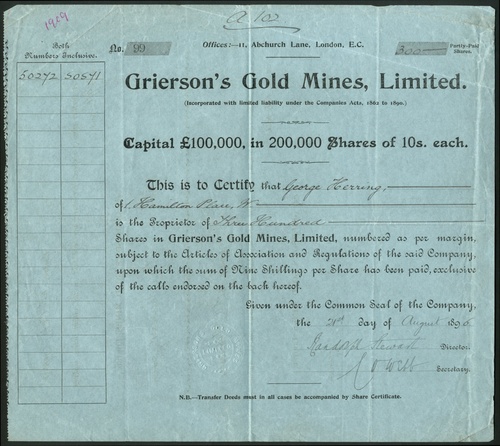 1909
A 10
Both
Numbers Inclusive.
No. 99
Offices:—11, Abchurch Lane, London, E.C.
300
Partly-Paid
Shares.
50272 50571
Grierson's Gold Mines, Limited.
(Incorporated with limited liability under the Companies Acts, 1862 to 1890.)
Capital £100,000, in 200,000 Shares of 10s. each.
This is to Certify that George Herring,
of 1 Hamilton Place, W.
is the Proprietor of Three Hundred
Shares in Grierson's Gold Mines, Limited, numbered as per margin,
subject to the Articles of Association and Regulations of the said Company,
upon which the sum of Nine Shillings per Share has been paid, exclusive
of the calls endorsed on the back hereof.
Given under the Common Seal of the Company,
the day of August 1896
Randolph Stewart Director.
Secretary.
N.B.—Transfer Deeds must in all cases be accompanied by Share Certificate.